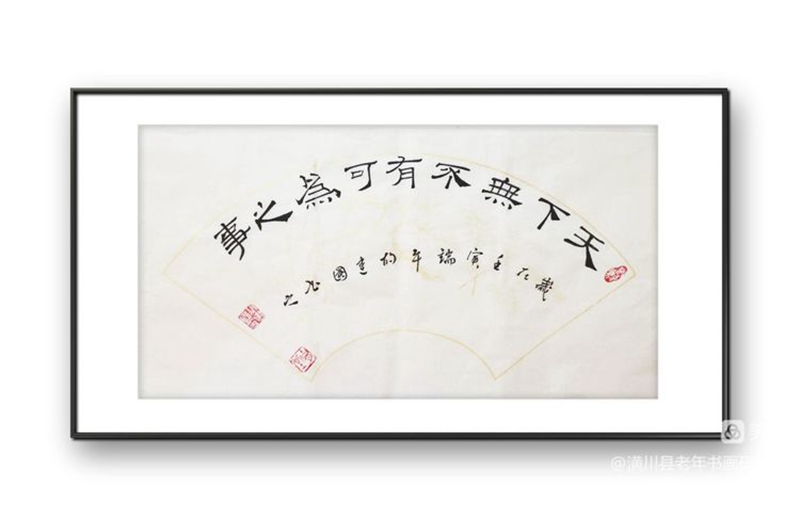 天下無不有可為之事
歲在壬寅端午建國
@潢川县老年书画